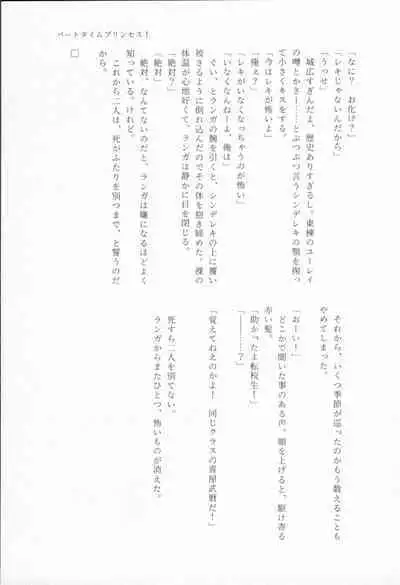 パートタイムプリンセス!
「なに? お化け?」
「レキじゃないんだから」
「うっせ」
城広すぎんだよ、歴史ありすぎるし。東棟のユーレイ
の噂とかさー……とぶつぶつ言うシンデレキの顎を掬っ
て小さくキスをする。
「今はレキが怖い」
「俺ぇ?」
「レキがいなくなっちゃうのが怖い」
「いなくなんねーよ、俺は」
ぐい、とランガの腕を引くと、シンデレキの上に覆い
被さるように倒れ込んだのでその体を抱き締めた。裸の
体温が心地好くて、ランガは静かに目を閉じる。
「絶対?」
「絶対」
絶対、なんてないのだと、ランガは嫌になるほどよく
知っている。けれど。
これから二人は、死がふたりを別つまで、と誓うのだ
から。
□
それから、いくつ季節が巡ったのかもう数えることも
やめてしまった。
「おーい!」
どこかで聞いた事のある声。顔を上げると、駆け寄る
赤い髪。
「助かったよ転校生!」
「———…?」
「覚えてねえのかよ! 同じクラスの喜屋武暦だ!」
死すら二人を別てない。
ランガからまたひとつ、怖いものが消えた。